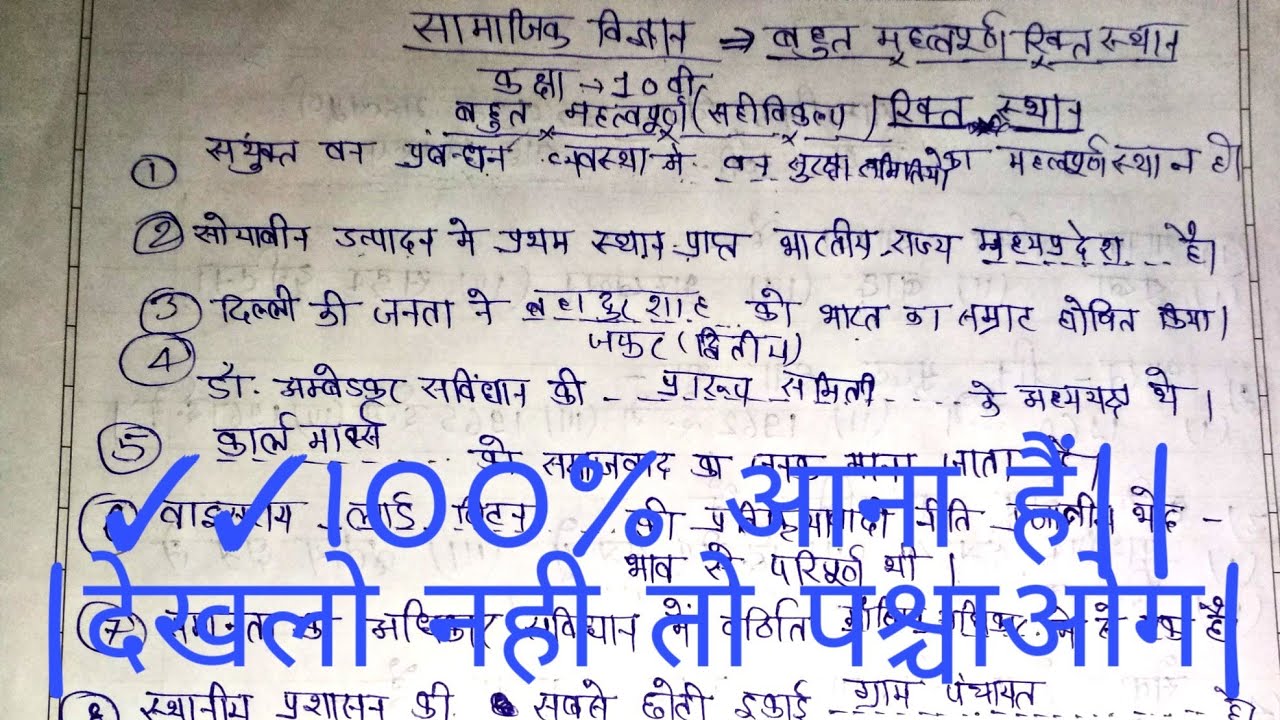 सामाजिक विज्ञान ⇒ बहुत महत्वपूर्ण रिक्त स्थान
कक्षा → 10 वी
बहुत महत्वपूर्ण (सहीविकल्प) रिक्त स्थान
① संयुक्त वन प्रंबन्धन व्यवस्था में वन सुरक्षा समितियों का महत्वपूर्ण स्थान है।
② सोयाबीन उत्पादन मे प्रथम स्थान प्राप्त भारतीय राज्य मध्यप्रदेश है।
③ दिल्ली की जनता ने बहादुरशाह को भारत का सम्राट घोषित किया।
जफर (द्वितीय)
④ डॉ. अम्बेडकर सविंधान की प्रारूप समिती के अध्ययक्ष थे।
⑤ कार्ल मार्क्स को समाजवाद का जनक माना जाता है।
✓✓100% आना हैं||
वाइसराय लार्ड लिटन की नीति भेद -
भाव से परिपूर्ण थी।
|देखलो नही तो पश्चाओग|
⑦ का अधिकार सविधान में है।
8 स्थानीय प्रशासन की सबसे छोटी इकाई ग्राम पंचायत है।